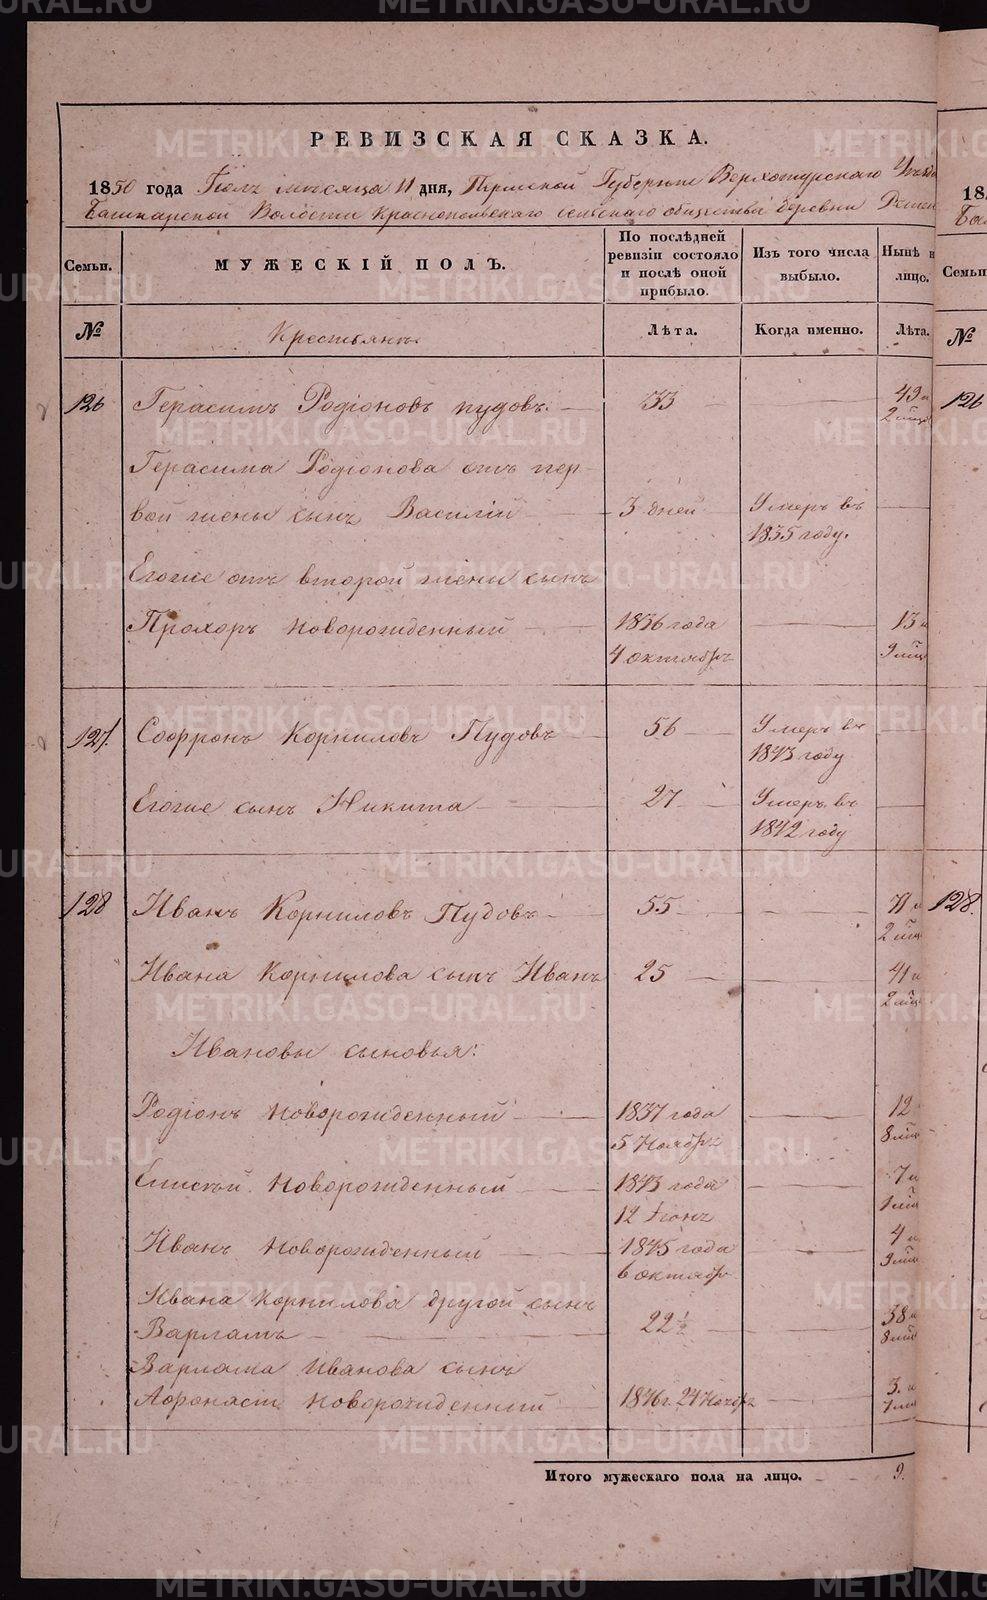 METRIKI.GASO-URAL.RU
РЕВИЗСКАЯ СКАЗКА.
1850 года Июля месяца 11 дня, Пермской Губернии Верхотурскаго Уезда
Башкарской Волости Краснопольскаго сельскаго общества деревни
Семьи.
МУЖЕСКІЙ ПОЛЪ.
По послѣдней ревизіи состояло и послѣ оной прибыло.
Изъ того числа выбыло.
Нынѣ н лицо.
№
Крестьянъ
Лѣта.
Когда именно.
Лѣта.
126 Герасимъ Родіоновъ Пудовъ. 33 49 и
2 мѣц
Герасима Родіонова отъ пер-
вой жены сынъ Василій 3 дней Умеръ въ
1835 году.
Егоже отъ второй жены сынъ
Прохоръ новорожденный 1836 года 13 и
4 октября 9 мѣц
127. Софронъ Корниловъ Пудовъ 56 Умеръ въ
1843 году
Егоже сынъ Никита 27 Умеръ въ
1842 году
128 Иванъ Корниловъ Пудовъ 55 71 и
2 мѣц
Ивана Корнилова сынъ Иванъ 25 41 и
2 мѣц
Ивановы сыновья:
Родіонъ новорожденный 1837 года 12
5 Ноября 8 мѣц
Елисѣй новорожденный 1843 года 7 и
12 Іюня 1 мѣц
Иванъ новорожденный 1845 года 4 и
6 октября 9 мѣц
Ивана Корнилова другой сынъ
Варламъ 22 ½ 38 и
8 мѣц
Варлама Иванова сынъ
Афонасій новорожденный 1846 г. 24 Ноября 3. и
7 мѣц
Итого мужескаго пола на лицо. 9.
18
Семьи
№
126
128.